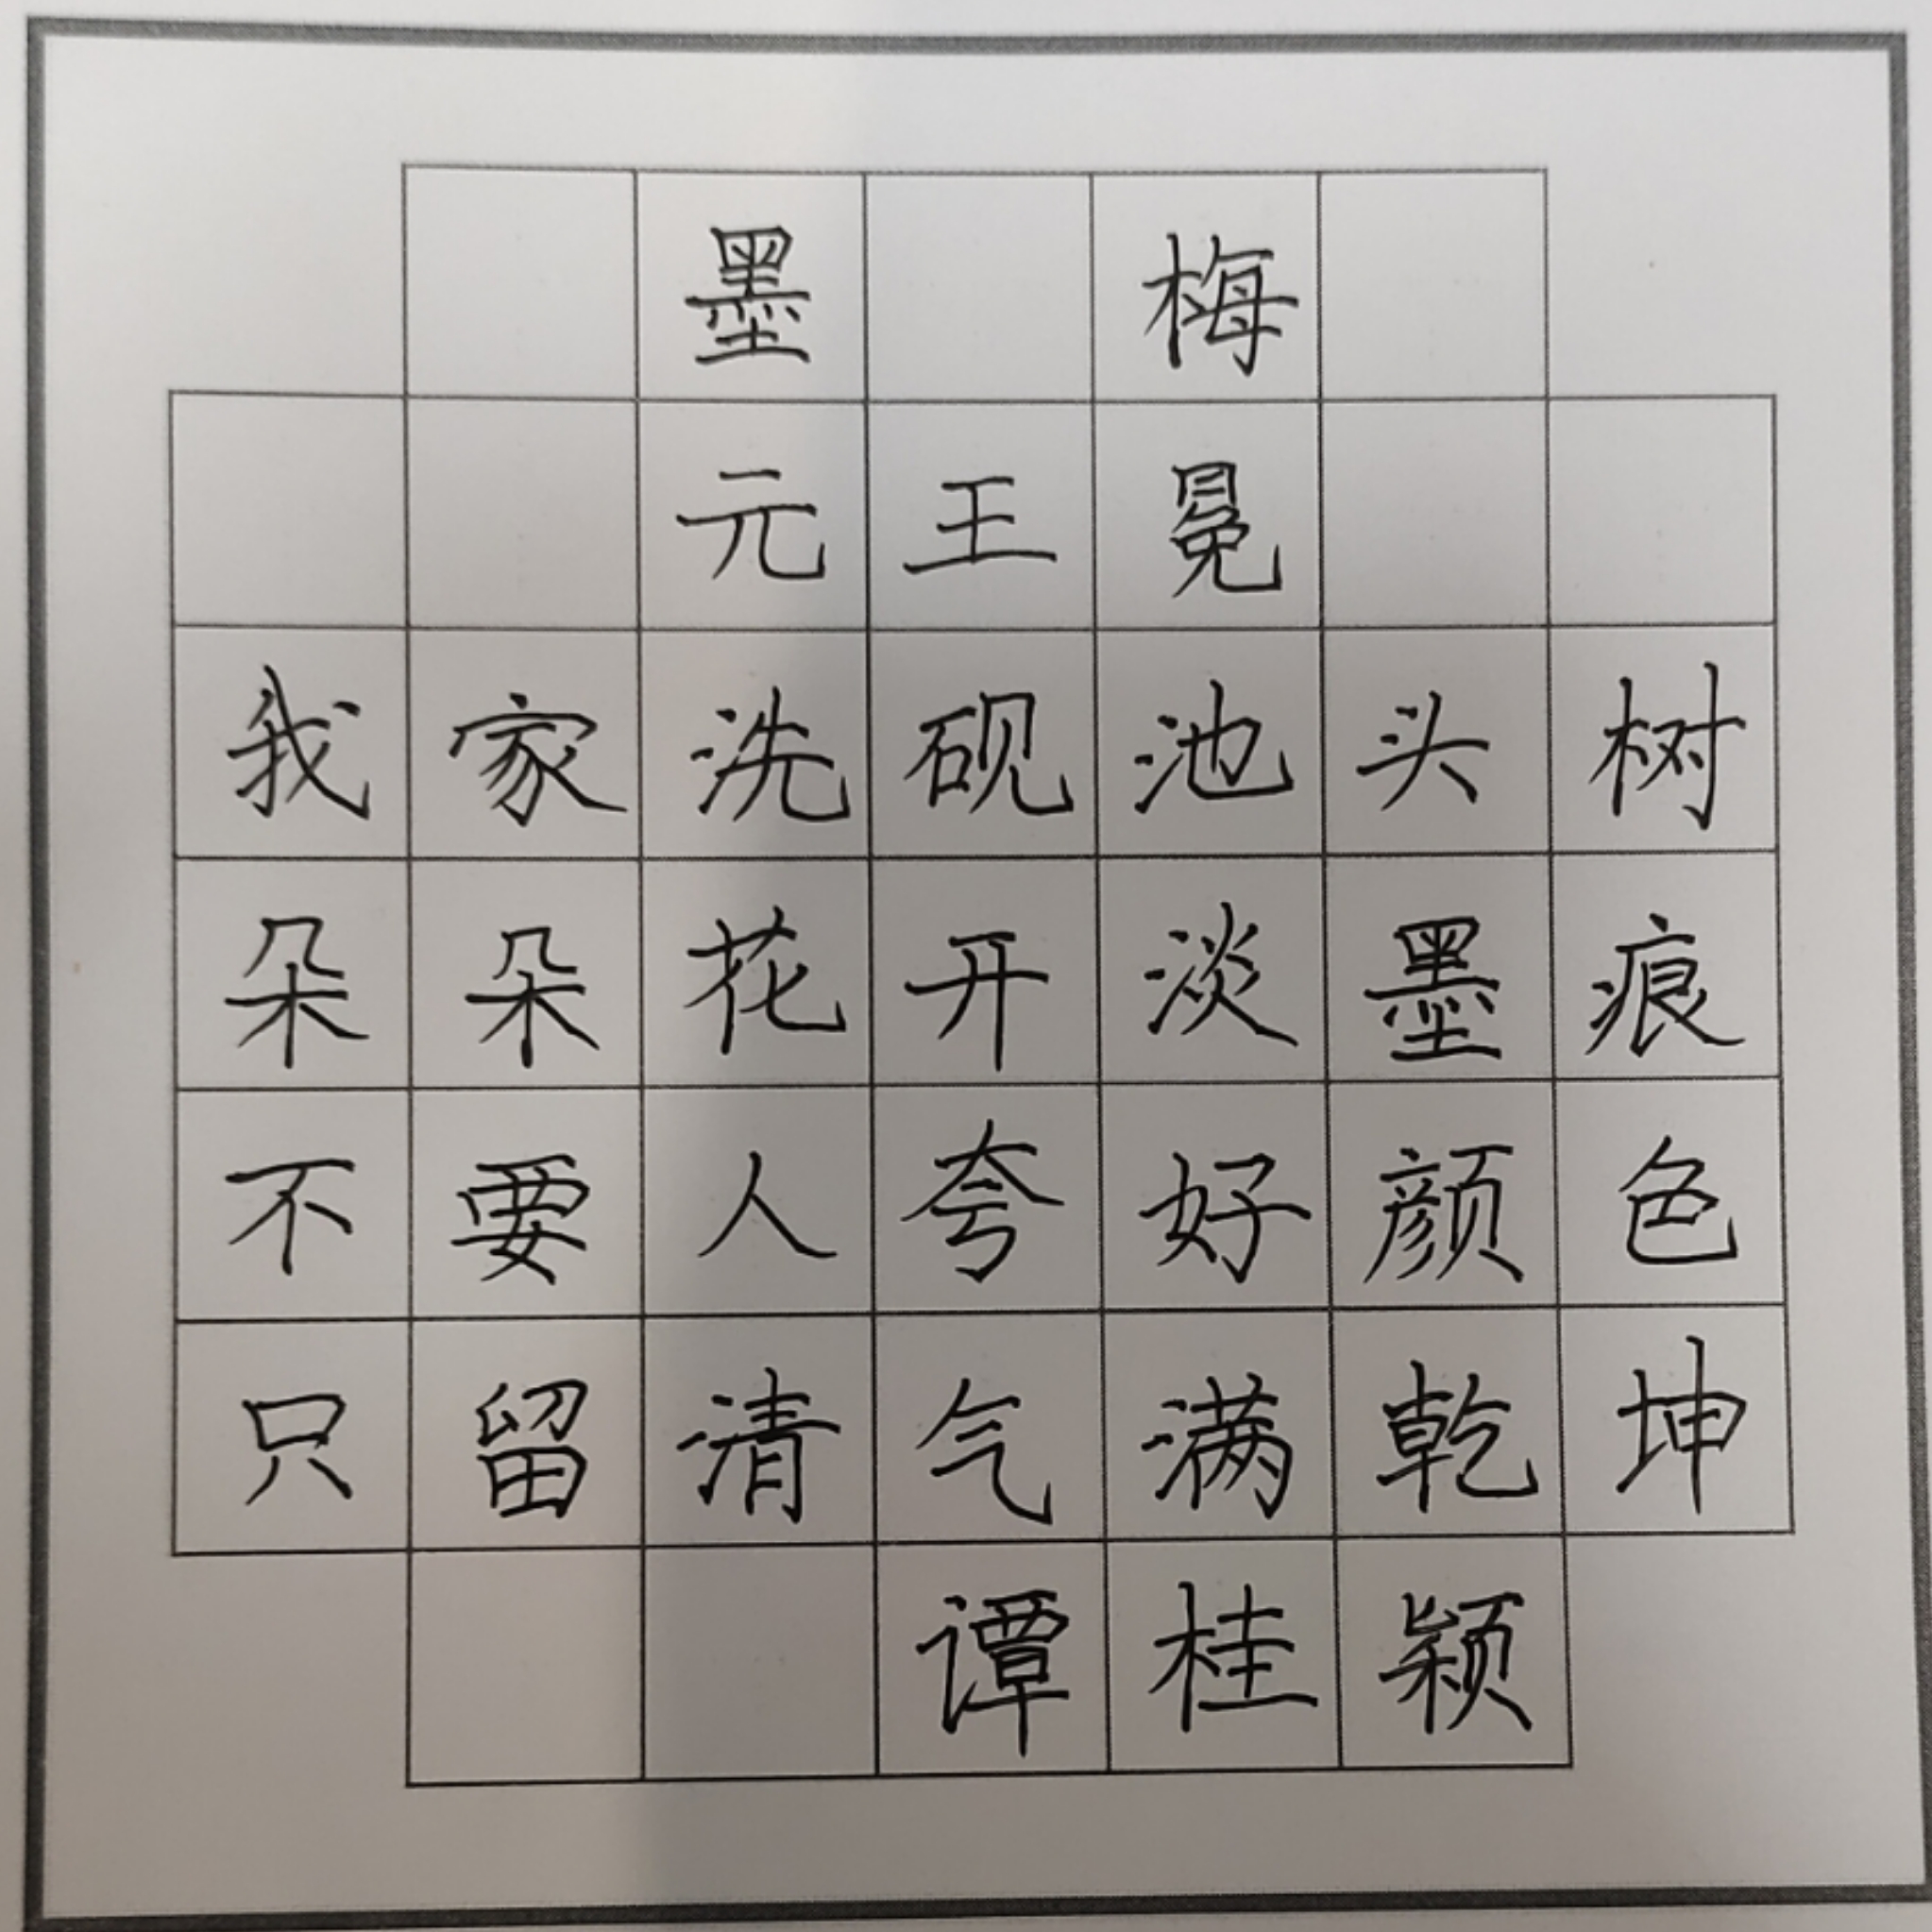 墨梅
元王冕
我家洗砚池头树
朵朵花开淡墨痕
不要人夸好颜色
只留清气满乾坤
谭桂颖